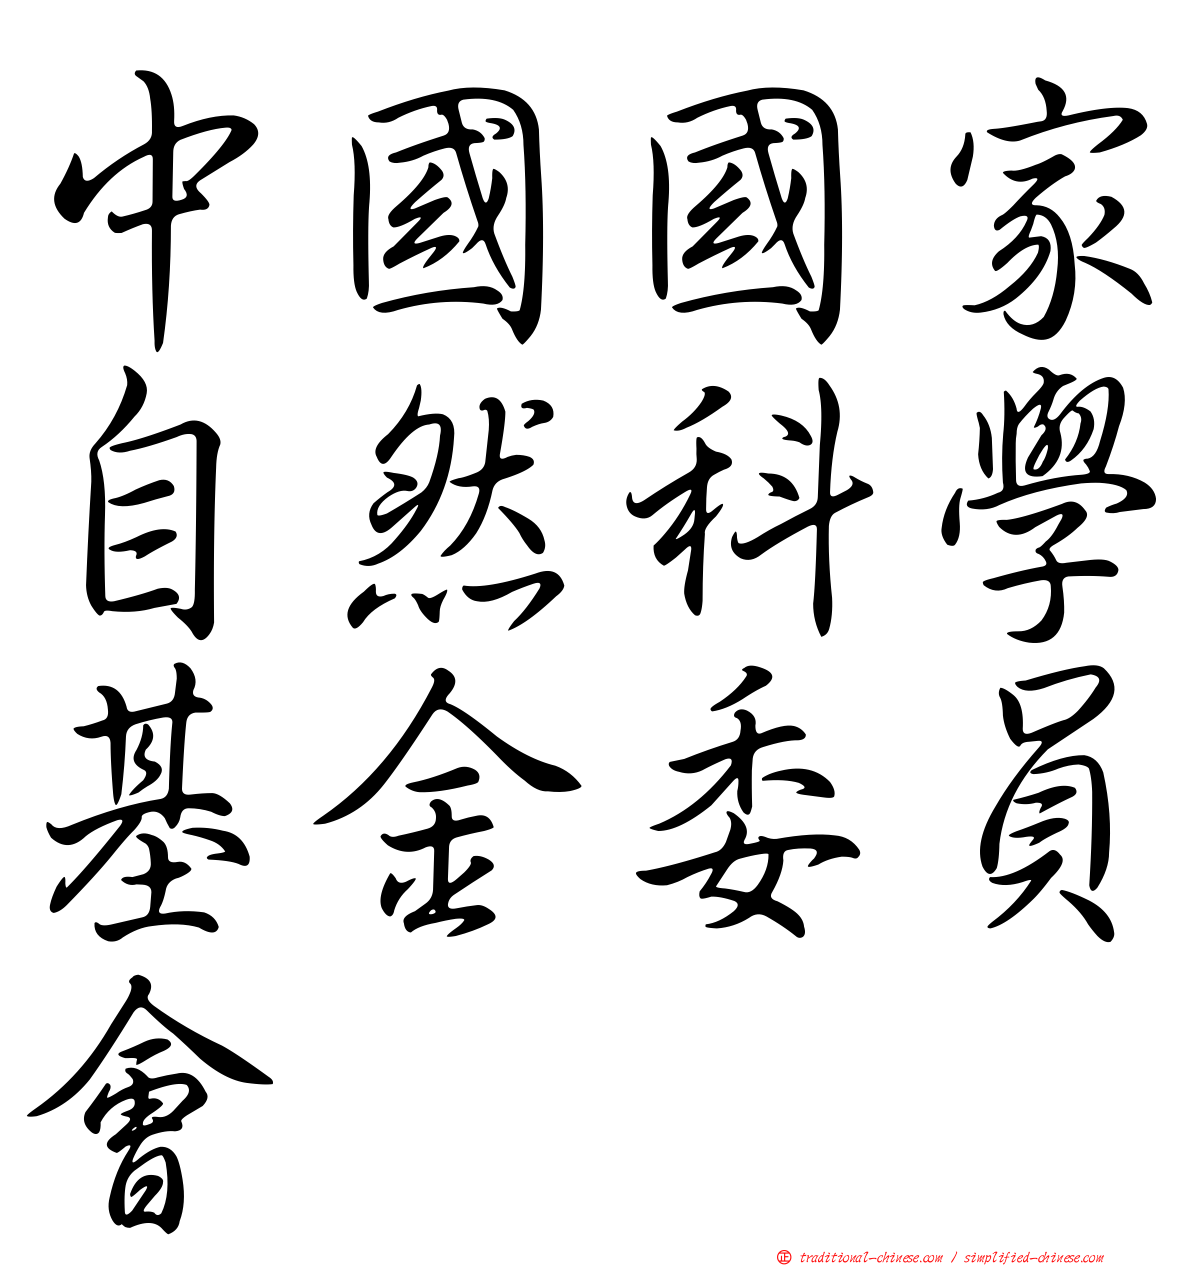 中國國家
自然科學
基金委員
會
正 traditional-chinese.com / simplified-chinese.com